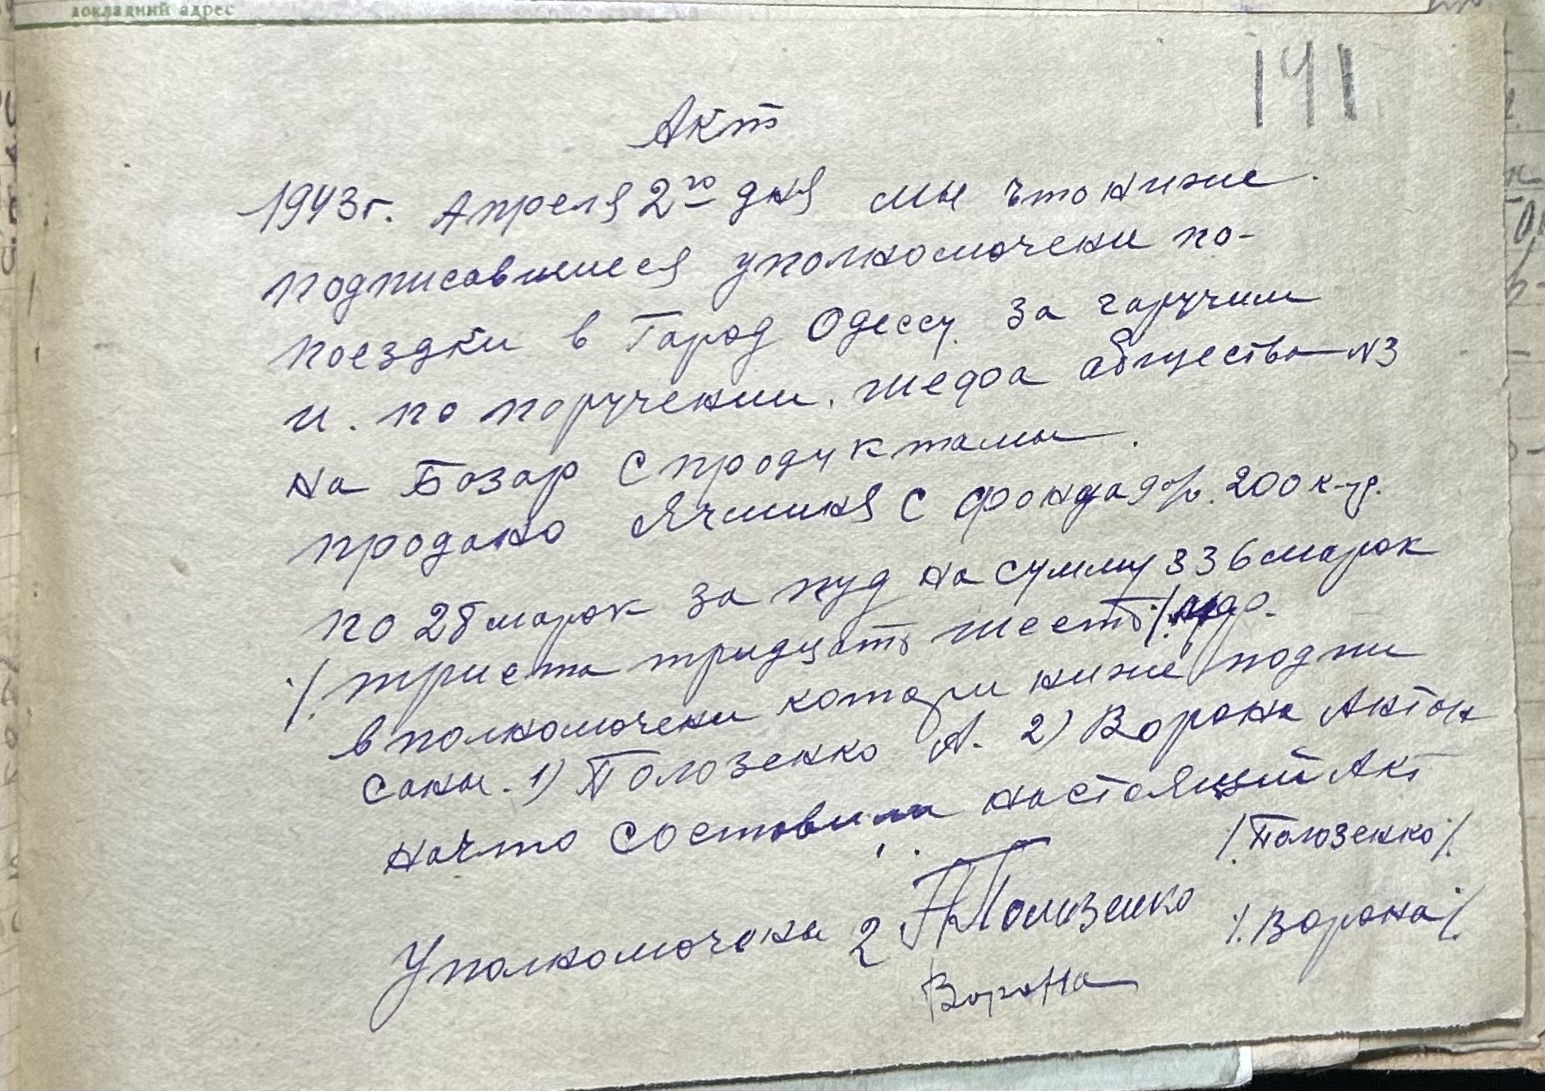 докладний адрес
141
Акт
1943г. Апреля 2го дня мы что ниже
подписавшиеся уполномочени по-
поездки в Город Одессу за горучим
и. по поручении. шефа общества N3
на Базар с продуктами.
продано Ячминя с фонда 200 к-гр.
по 28 марок за пуд на сумму 336 марок
/. триста тридцать шесть /.
вполномочени котори ниже подпи
сани. 1) Полозенко А. 2) Ворона Антон
начто составили настоящий Акт
/. Полозенко /.
Уполномочени 2 Полозенко /. Ворона /.
Ворона